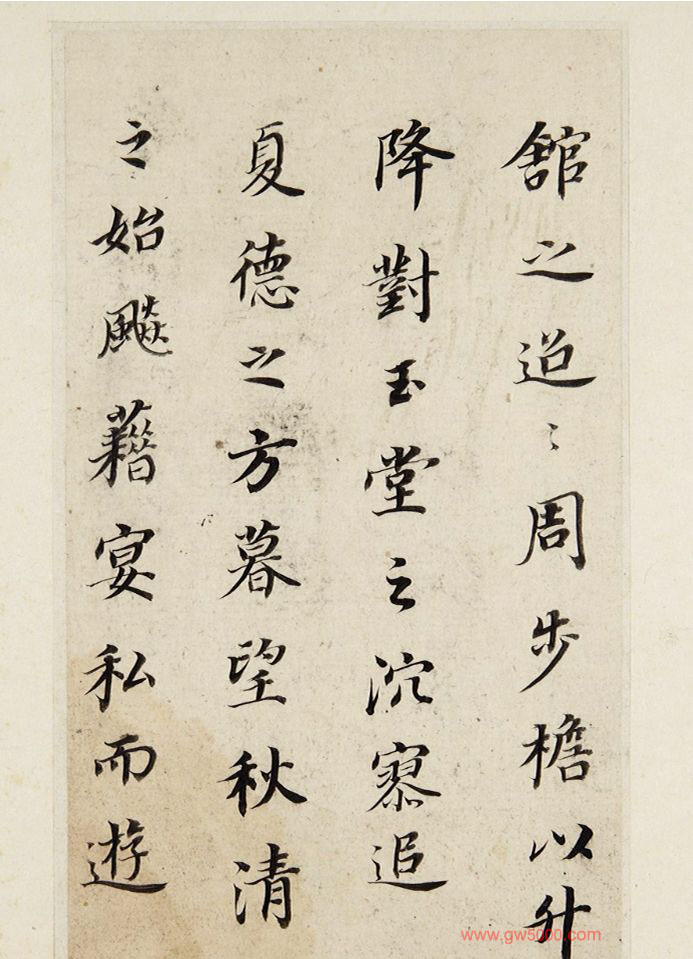 館之迢〻周步檐以升
降對玉堂之泬寥追
夏德之方暮望秋清
之始飈藉宴私而遊
www.gw5000.com